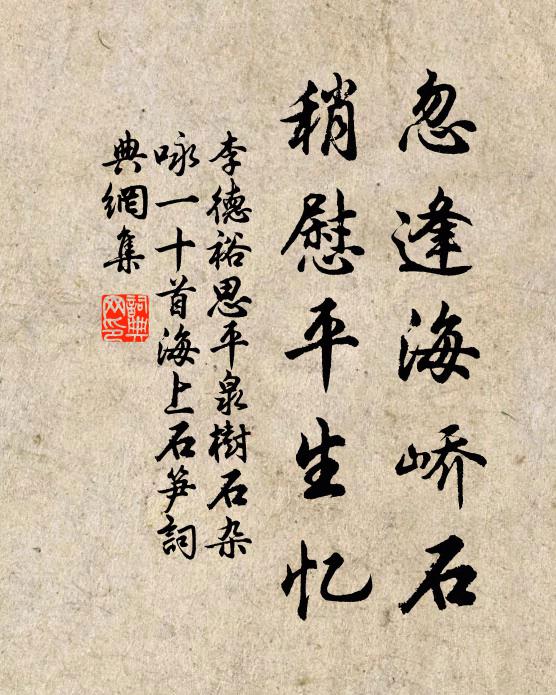 忽逢海峤石
稍慰平生忆
李德裕思平泉樹石杂
咏一十首海上石笋詞
典網集
詞典
网印